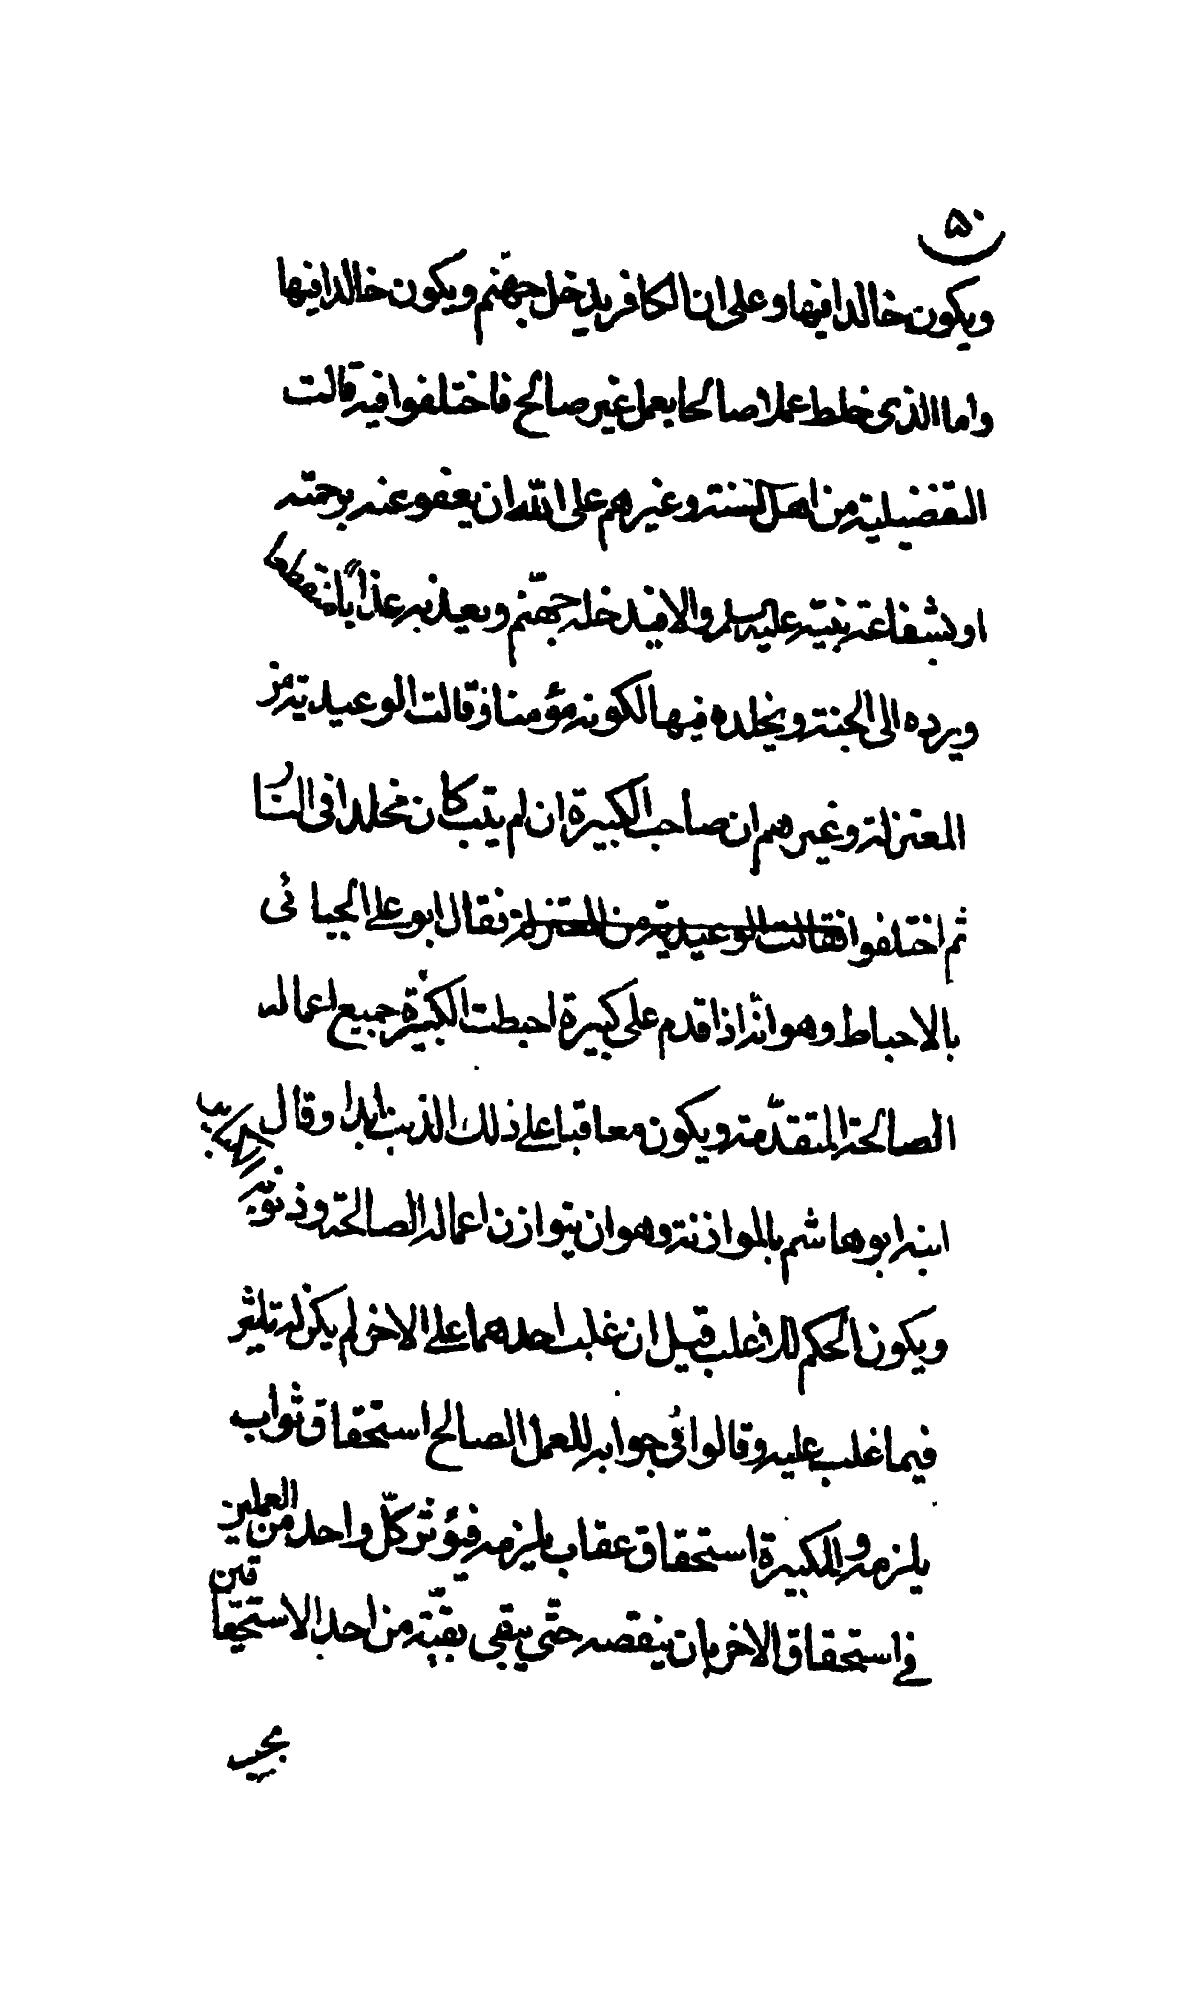 ٥٠
ويكون خالدا فيها وعلى ان الكافر يدخل جهنم ويكون خالدا فيها
واما الذى خلط عملا صالحا بعمل غير صالح فاختلفوا فيه قالت
التفضيلية من اهل السنة وغيرهم على الله ان يعفو عنه برحمته
او بشفاعة نبيّه عليه السلم والا فيدخله جهنّم ويعذبه عذاباً منقطعا
ويرده الى الجنة ويخلده فيها لكونه مؤمنا وقالت الوعيدية من
المعتزلة وغيرهم ان صاحب الكبيرة ان لم يتب كان مخلدا فى النار
ثم اختلفوا فقالت الوعيدية من المعتزلة فقال ابو على الجبائى
بالاحباط وهو انه اذا قدم على كبيرة احبطت الكبيرة جميع اعماله
الصالحة المتقدّمة ويكون معاقبا على ذلك الذنب ابدا وقال
ابنه ابو هاشم بالموازنة وهو ان يتوازن اعماله الصالحة وذنوبه
ويكون الحكم للاغلب قيل ان غلب احدهما على الاخر لم يكن له تاثير
فيما غلب عليه وقالوا فى جوابه للعمل الصالح استحقاق ثواب
يلزمه وللكبيرة استحقاق عقاب يلزمه فيؤثر كلّ واحد من العملين
فى استحقاق الاخر بان ينقصه حتّى يبقى بقيّة من احد الاستحقاقين